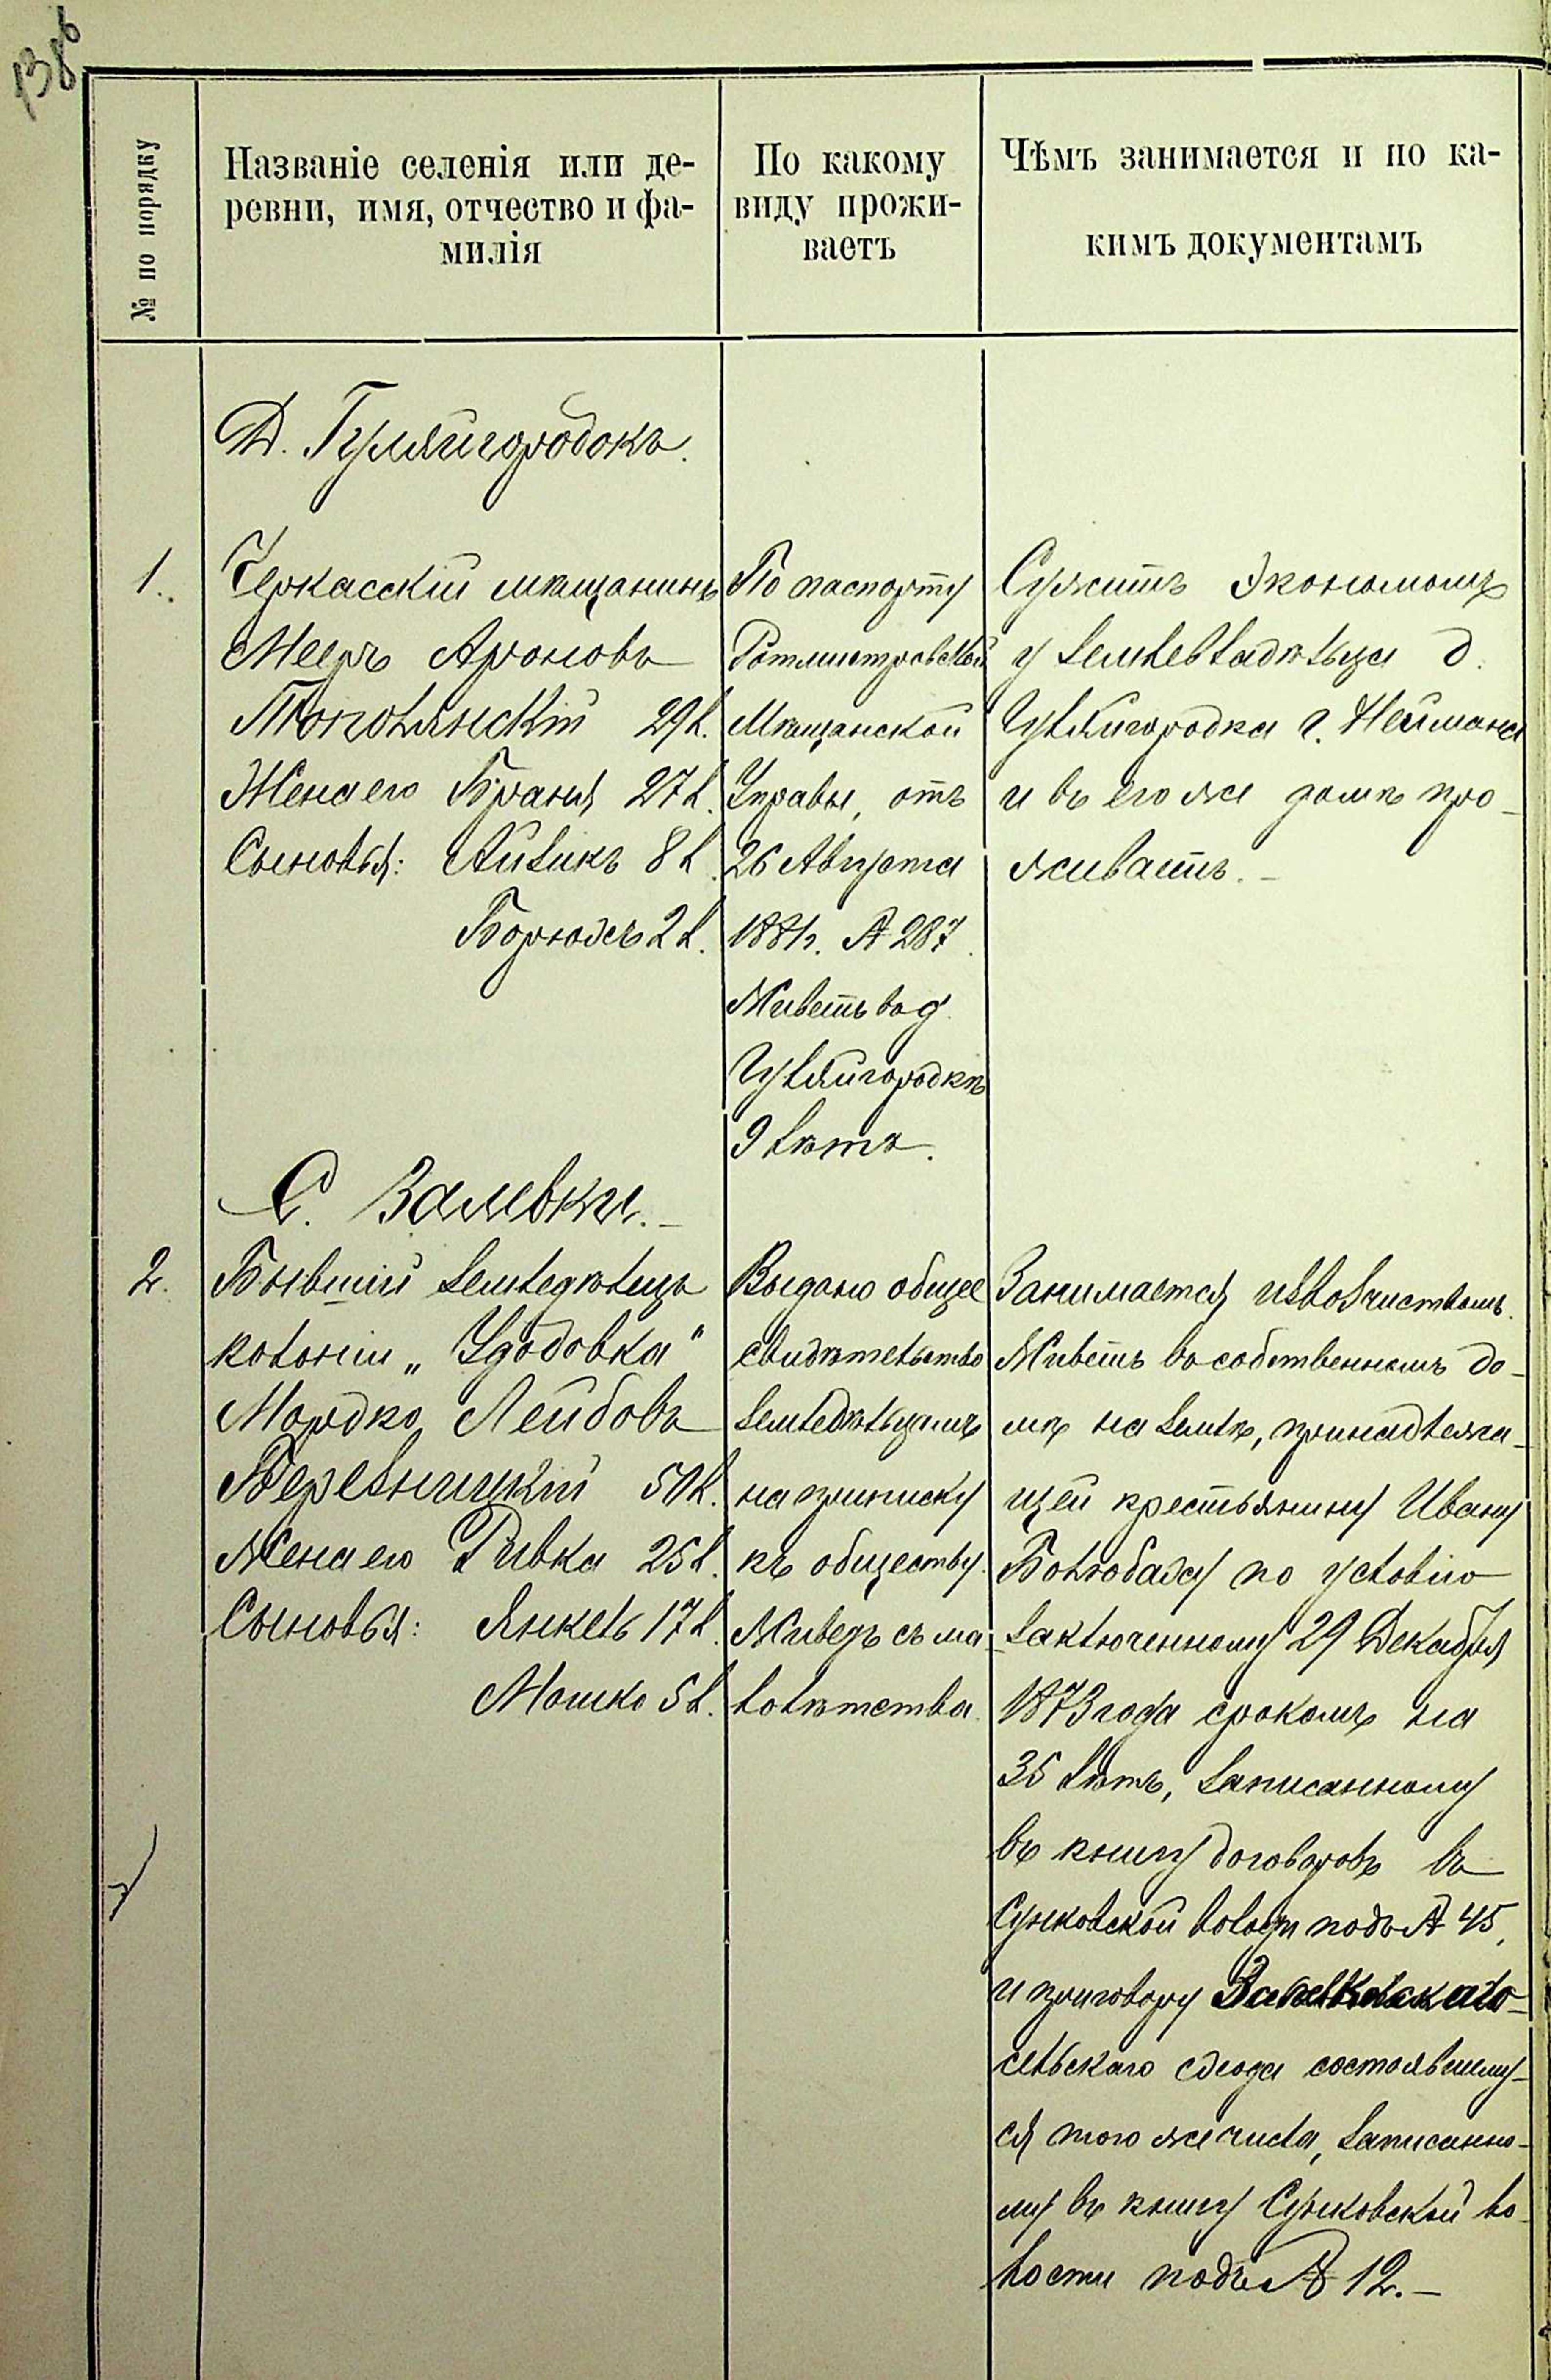 138б
№ по порядку
Названіе селенія или де-
ревни, имя, отчество и фа-
милія
По какому
виду прожи-
ваетъ
Чѣмъ занимается и по ка-
кимъ документамъ
Д. Гуляйгородокъ.
1.
Черкасскій мѣщанинъ
Мееръ Ароновъ
Тополянскій 29 л.
Жена его Браня 27 л.
Сыновья: Айзикъ 8 л.
Борюхъ 2 л.
По паспорту
Ротмистровской
Мѣщанской
Управы, отъ
26 Августа
1881 г. № 287.
Живетъ въ д.
Гуляйгородкѣ
9 лѣтъ.
Служитъ экономомъ
у землевладѣльца д.
Гуляйгородка г. Неймана
и въ его же домѣ про-
живаетъ. –
С. Залевки. –
2.
Бывшій земледѣлецъ
колоніи „Удобовка"
Мордко Лейбовъ
Березницкій 50 л.
Жена его Ривка 25 л.
Сыновья: Янкель 17 л.
Мошко 5 л.
Выдано общее
свидѣтельство
земледѣльцамъ
на приписку
къ обществу.
Живетъ съ ма-
лолѣтства.
Занимается извозчиствомъ.
Живетъ въ собственномъ до-
мѣ на землѣ, принадлежа-
щей крестьянину Ивану
по условію
заключенному 29 Декабря
1873 года срокомъ на
35 лѣтъ, записанному
въ книгу договоровъ въ
Сунковской волости подъ № 45,
и приговору Залевковскаго
сельскаго схода состоявшему-
ся того же числа, записанно-
му въ книгу Сунковской во-
лости подъ № 12. –